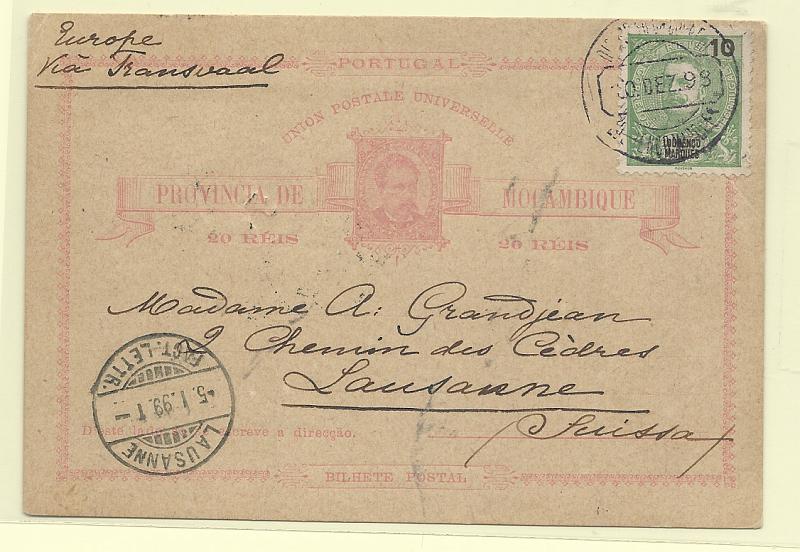 Europe
Viâ Transvaal
PORTUGAL
UNION POSTALE UNIVERSELLE
PROVINCIA DE MOÇAMBIQUE
20 RÉIS 20 RÉIS
10
LOURENÇO
MARQUES
DEZ. 98
Madame A. Grandjean
9 Chemin des Cèdres
Lausanne
(Suissa)
FACT.-LETTR.
5.I.99.I-
LAUSANNE
D'este lado só se escreve a direcção.
BILHETE POSTAL